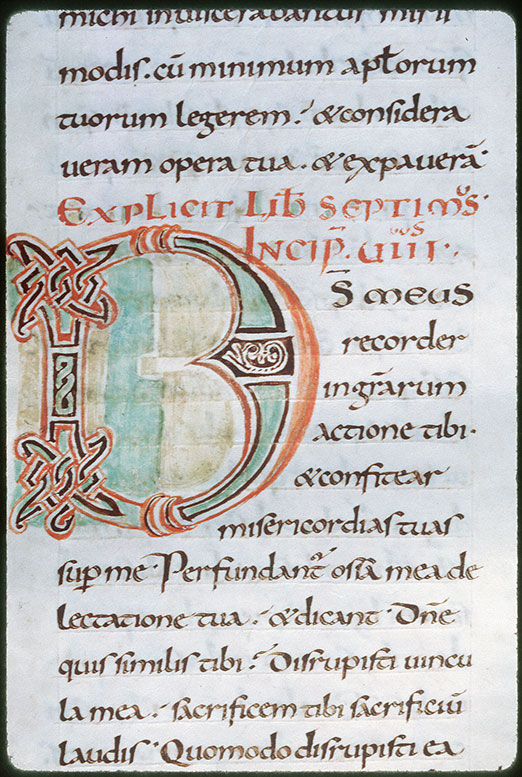 michi inuiscerabantur miris
modis. cū minimum apłorum
tuorum legerem. & considera
ueram opera tua. & expauerā.
Explicit Lib̄ septimꝰs.
Incip̄. uiii.
D̄S meus
recorder
in grarum
actione tibi.
& confitear
misericordias tuas
sup me. Perfundant̄ ossa mea de
lectatione tua. & dicant. Dn̄e
quis similis tibi? Disrupisti uincu
la mea. sacrificem tibi sacrificiū
laudis. Quomodo disrupisti ea